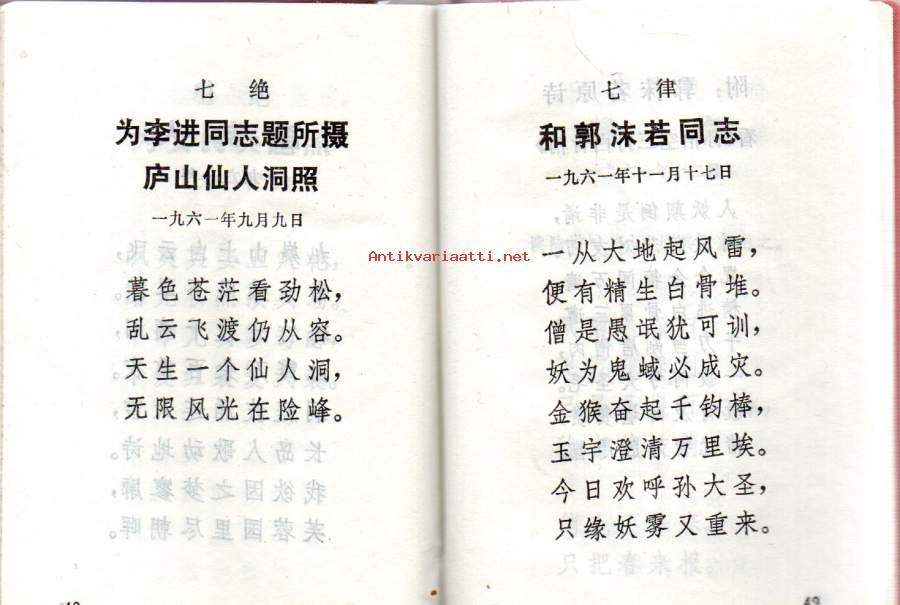 七 绝
为李进同志题所摄
庐山仙人洞照
一九六一年九月九日
暮色苍茫看劲松，
乱云飞渡仍从容。
天生一个仙人洞，
无限风光在险峰。
七 律
和郭沫若同志
一九六一年十一月十七日
一从大地起风雷，
便有精生白骨堆。
僧是愚氓犹可训，
妖为鬼蜮必成灾。
金猴奋起千钧棒，
玉宇澄清万里埃。
今日欢呼孙大圣，
只缘妖雾又重来。
Antikvariaatti.net